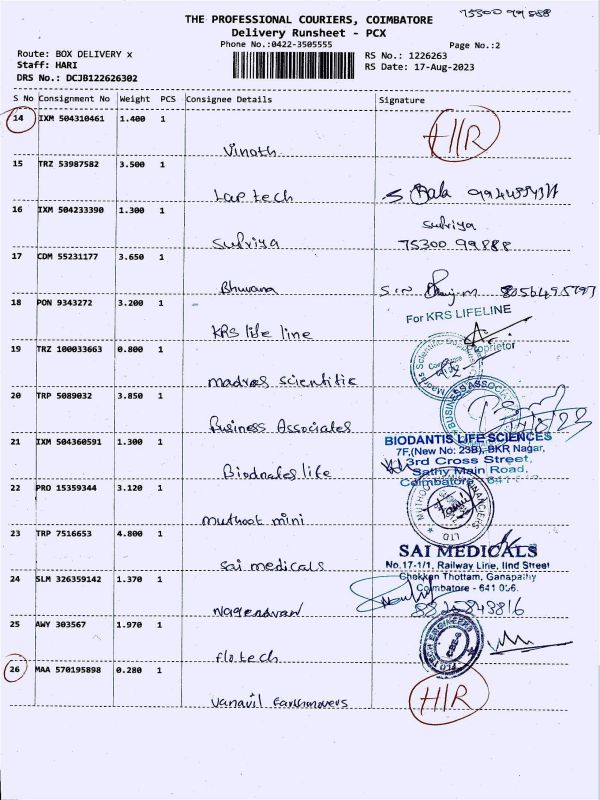 75300 99888
THE PROFESSIONAL COURIERS, COIMBATORE
Delivery Runsheet - PCX
Phone No.:0422-3505555
Page No.:2
Route: BOX DELIVERY x
Staff: HARI
DRS No.: DCJB122626302
RS No.: 1226263
RS Date: 17-Aug-2023
S No Consignment No Weight PCS Consignee Details Signature
14 IXM 504310461 1.400 1
Vinoth H/R
15 TRZ 53987582 3.500 1
Lap tech S Bala
16 IXM 504233390 1.300 1 Supriya
Supriya 75300 99888
17 CDM 55231177 3.650 1
Bhuvana
18 PON 9343272 3.200 1 For KRS LIFELINE
KRS life line Proprietor
19 TRZ 100033663 0.800 1
madras scientific
20 TRP 5089032 3.850 1
Business Associates
21 IXM 504360591 1.300 1 BIODANTIS LIFE SCIENCES
7F,(New No: 23B), BKR Nagar,
3rd Cross Street,
Biodnates life Sathy Main Road,
Coimbatore - 641
22 PRO 15359344 3.120 1
muthoot mini
23 TRP 7516653 4.800 1
SAI MEDICALS
sai medicals No.17-1/1, Railway Line, IInd Street
24 SLM 326359142 1.370 1 Chekkan Thottam, Ganapathy
Coimbatore - 641 006.
Nagendran
25 AWY 303567 1.970 1
flo tech FLO TECH ENGINEERS
26 MAA 570195898 0.280 1
Vanavil Earthmovers H/R